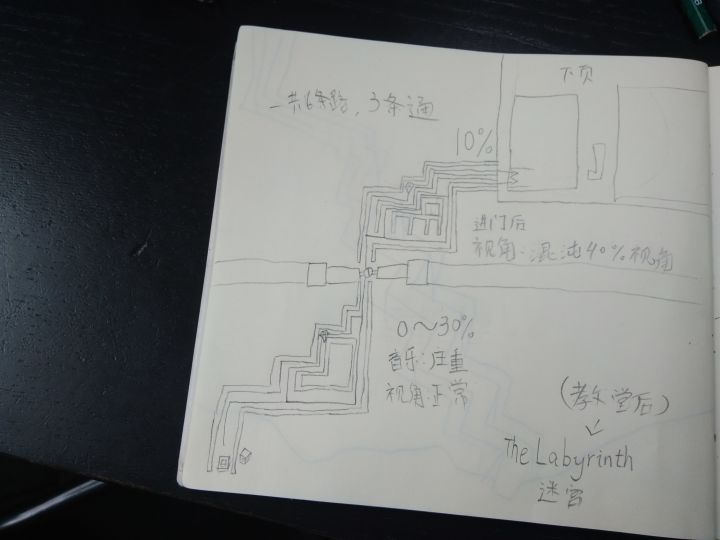 下页
一共6条路，3条通
10%
进门后
视角：混沌40%视角
0～30%
音乐：庄重
视角：正常
（教堂后）
The Labyrinth
迷宫